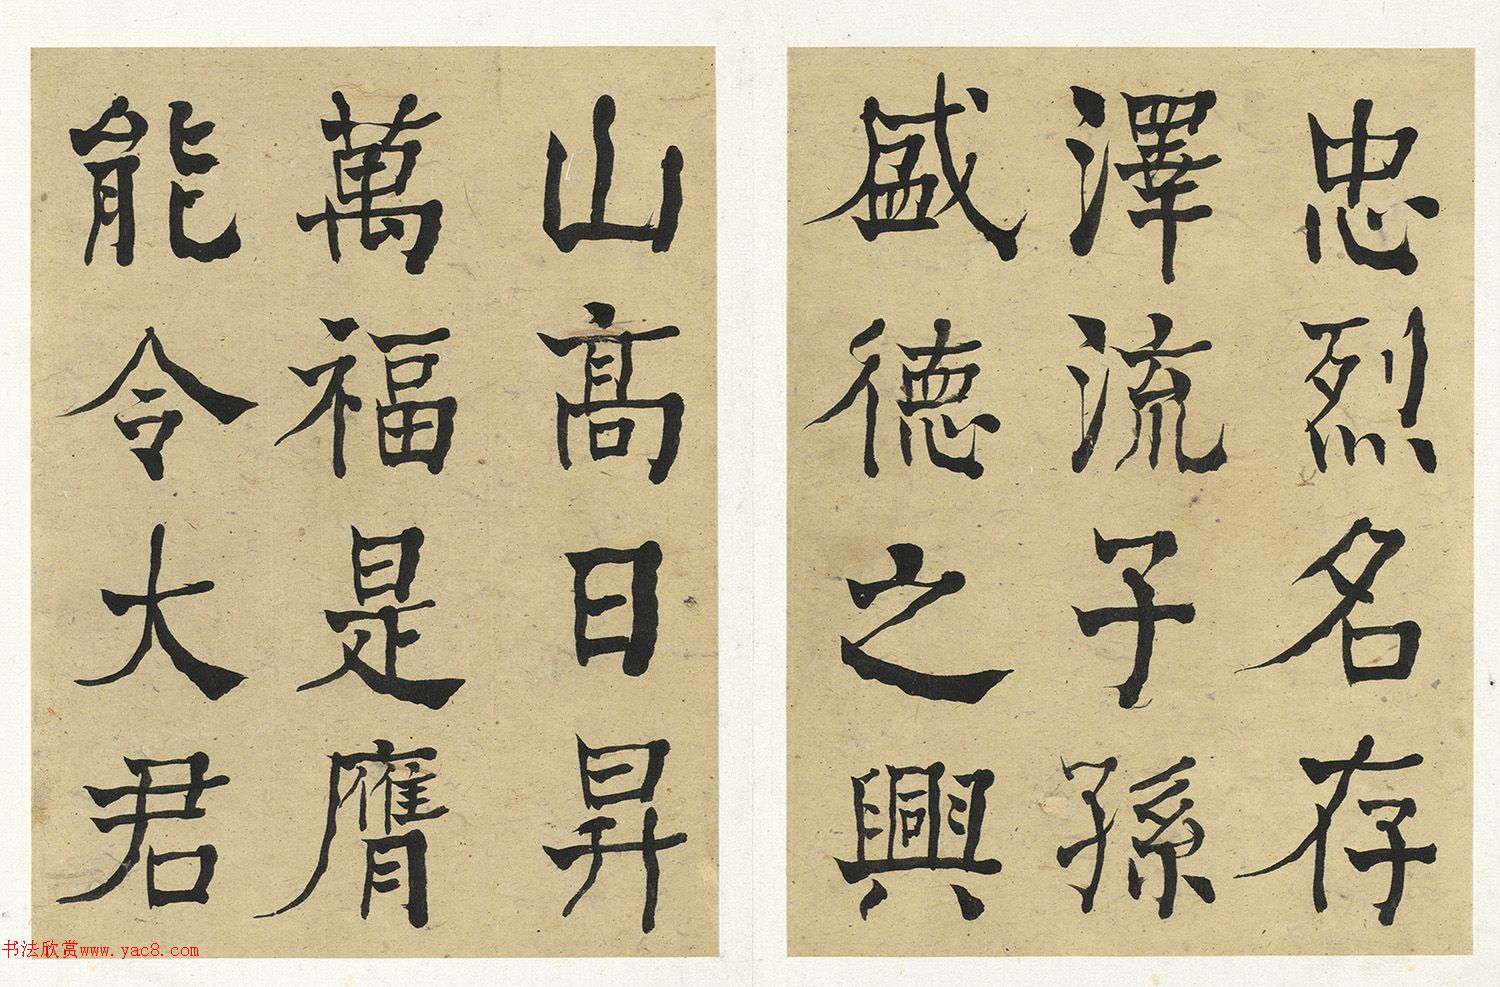 忠烈名存
澤流子孫
盛德之興
山高日昇
萬福是膺
能令大君
书法欣赏www.yac8.com